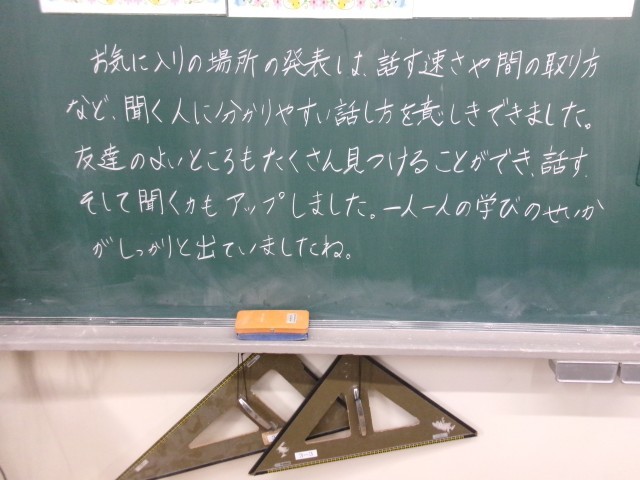 お気に入りの場所の発表は、話す速さや間の取り方
など、聞く人に分かりやすい話し方を意しきできました。
友達のよいところもたくさん見つけることができ、話す、
そして聞く力もアップしました。一人一人の学びのせいか
がしっかりと出ていましたね。